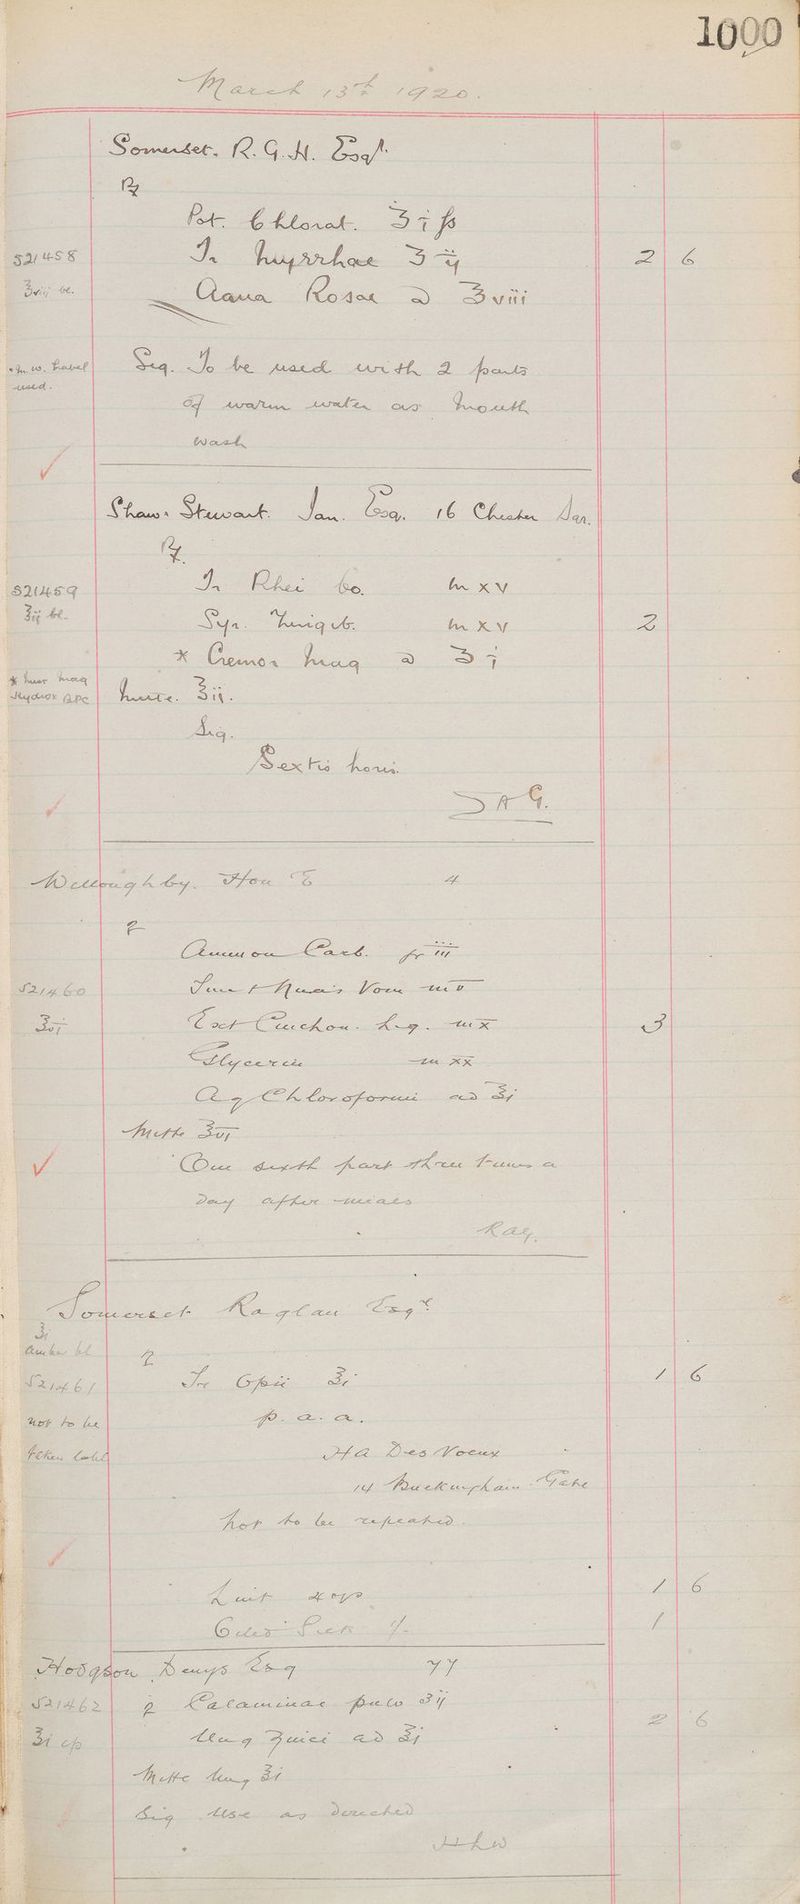 1000
March 13th 1920.
Somerset. R. G. H. Esqr.
℞
Pot. Chlorat. ʒ i ſs
521458 Tr Myrrhae ʒ ij 2 6
℥viii bl. Aqua Rosae ad ℥ viii
Sig. To be used with 2 parts
used.
of warm water as Mouth
wash
Shaw. Stewart. Ian. Esq. 16 Chester Sqr.
℞.
521459 Tr Rhei Co. m xv
℥ij bl. Syr. Zingib. m xv 2
* Cremor Mag ad ʒ i
* Mist Mag
Hydrox BPC Mitte. ℥ij.
Sig.
Sextis horis.
J A G.
Willoughby. Hon E 4
℞
Ammon Carb. gr iii
521460 Tinct Nucis Vom m v
℥vi Ext Cinchon. Liq. m x 3
Glycerin m xx
Aq Chloroformi ad ℥i
Mitte ℥vi
One sixth part three times a
day after meals
Somerset Raglan Esqr.
℥i
amber bl ℞
521461 Tr Opii ℥i 1 6
not to be p. a. a.
taken label H A Des Voeux
14 Buckingham Gate
Not to be repeated.
Lint 4 ozs 1 6
Oiled Silk 1/- 1
Hodgson Denys Esq 77
521462 ℞ Calaminae pulv ʒij
℥i cp Ung Zinci ad ℥i 2 6
Mitte Ung ℥i
Sig Use as directed